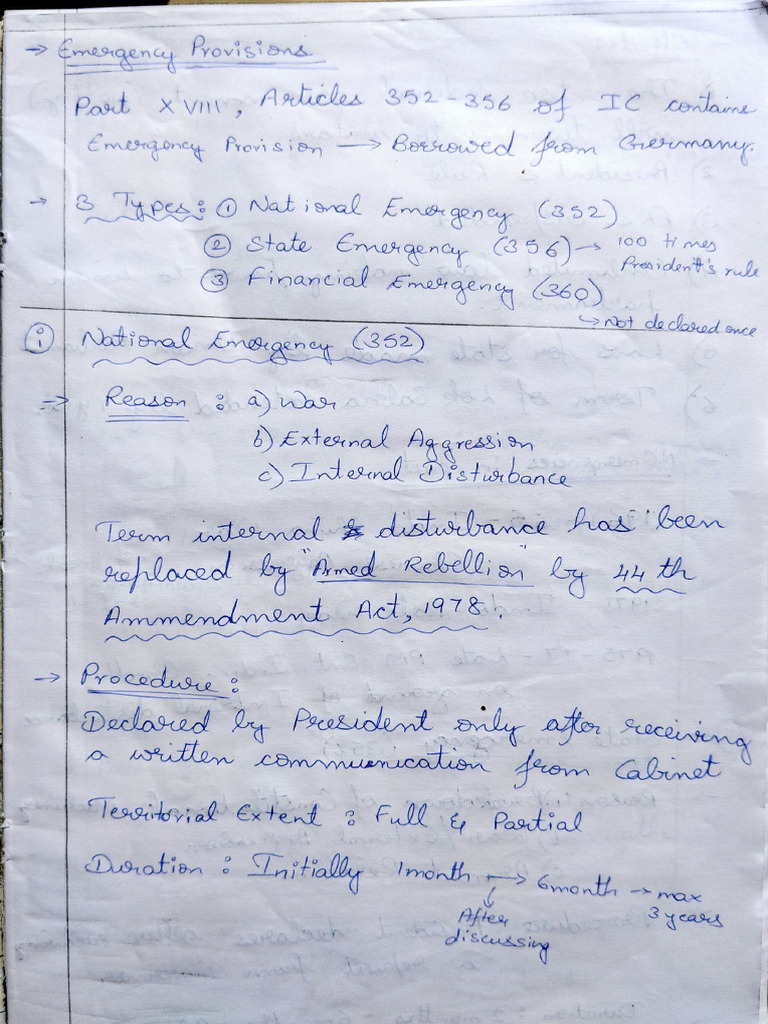 → Emergency Provisions
Part XVIII, Articles 352-356 of IC contains
Emergency Provision → Borrowed from Germany.
→ 3 Types: ① National Emergency (352)
② State Emergency (356) → 100 times
President's rule
③ Financial Emergency (360)
↳ Not declared once
ⓘ National Emergency (352)
→ Reason : a) War
b) External Aggression
c) Internal Disturbance
Term internal disturbance has been
replaced by "Armed Rebellion" by 44th
Ammendment Act, 1978.
→ Procedure :
Declared by President only after receiving
a written communication from Cabinet
Territorial Extent : Full & Partial
Duration : Initially 1month → 6month → max
3 years
↓
After
discussing